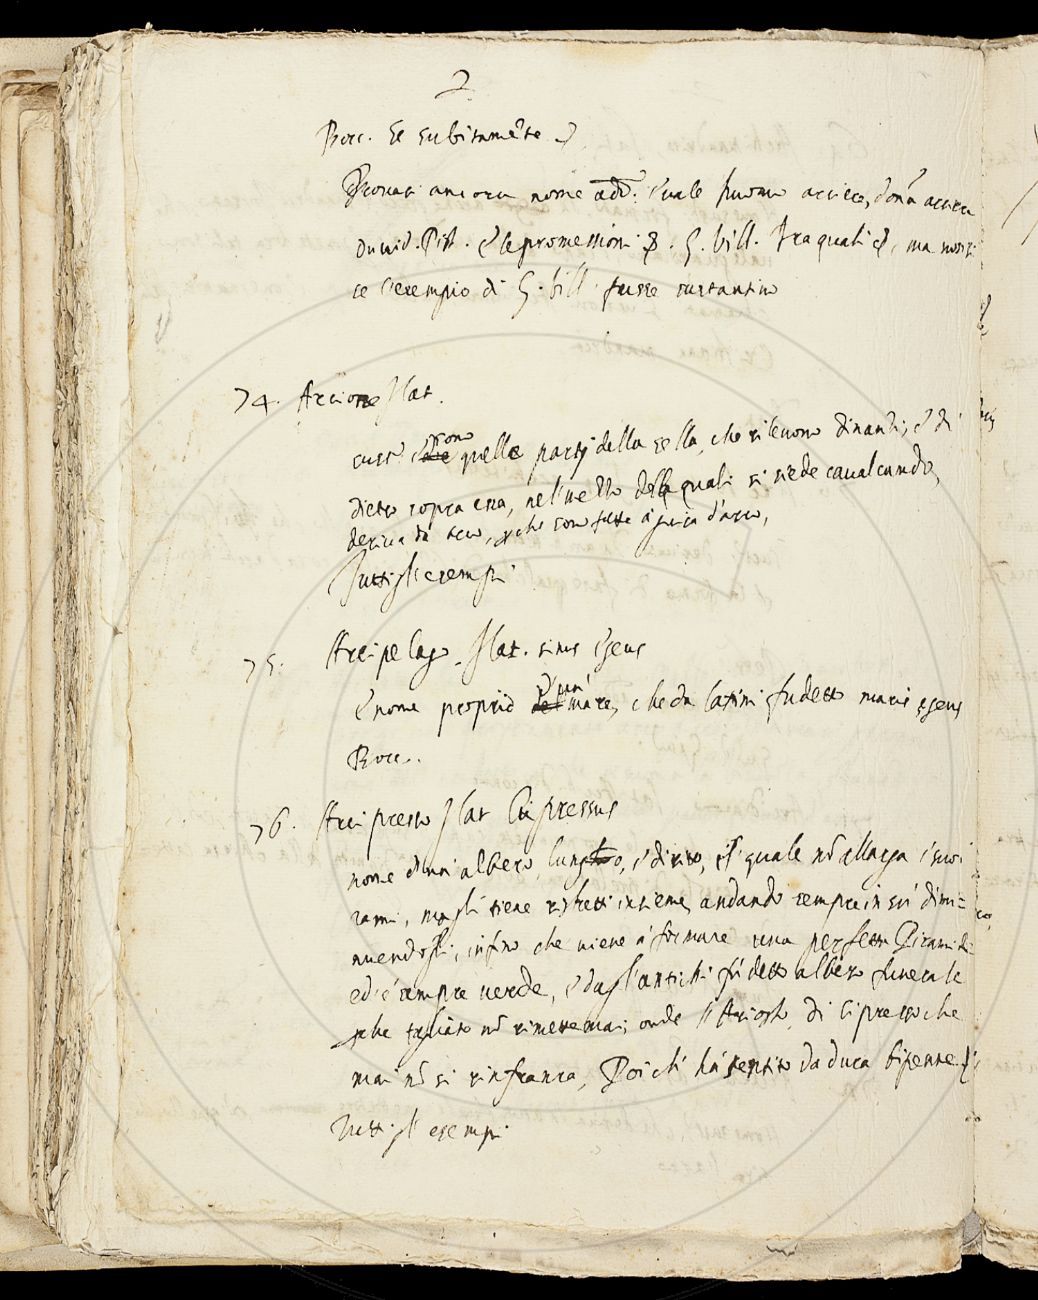 2
Bocc. Se subitame͂te
ancora nome add.
David. Pist. e le promessioni G. Vill. tra quali ma
ce l'esempio di G. Vill. fusse sustantivo
74. Arcione Lat.
sono
quelle parti della sella, che rilevono dinanzi, e di
dietro sopra essa, nel mezzo delle quali si siede cavalcando,
deriva da arco, che son fatte à guisa d'arco,
Tutti gli esempi
75. Arcipelago. Lat. sinus Egeus
è nome proprio mare, che da latini fu detto maris egeus
Bocc.
76. Arcipresso Lat Cupressus
nome d'un albero, lungo, e diritto, il quale nõ allarga i suoi
rami, mà gli tiene ristretti insieme, andando sempre in sù dimi=
nuendogli, infino che viene à formare una perfetta Piramide
ed è sempre verde, e dagl'antichi fù detto albero funerale
tagliato nõ rimette mai; onde l'Ariosto, di cipresso che
mai nõ si rinfranca, Poich' hà sentito da dura bipenne
Tutti gl'esempi